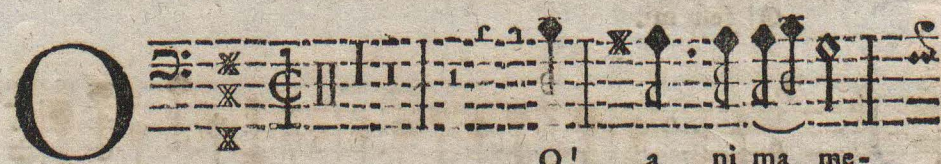 O
O! a ni ma me-